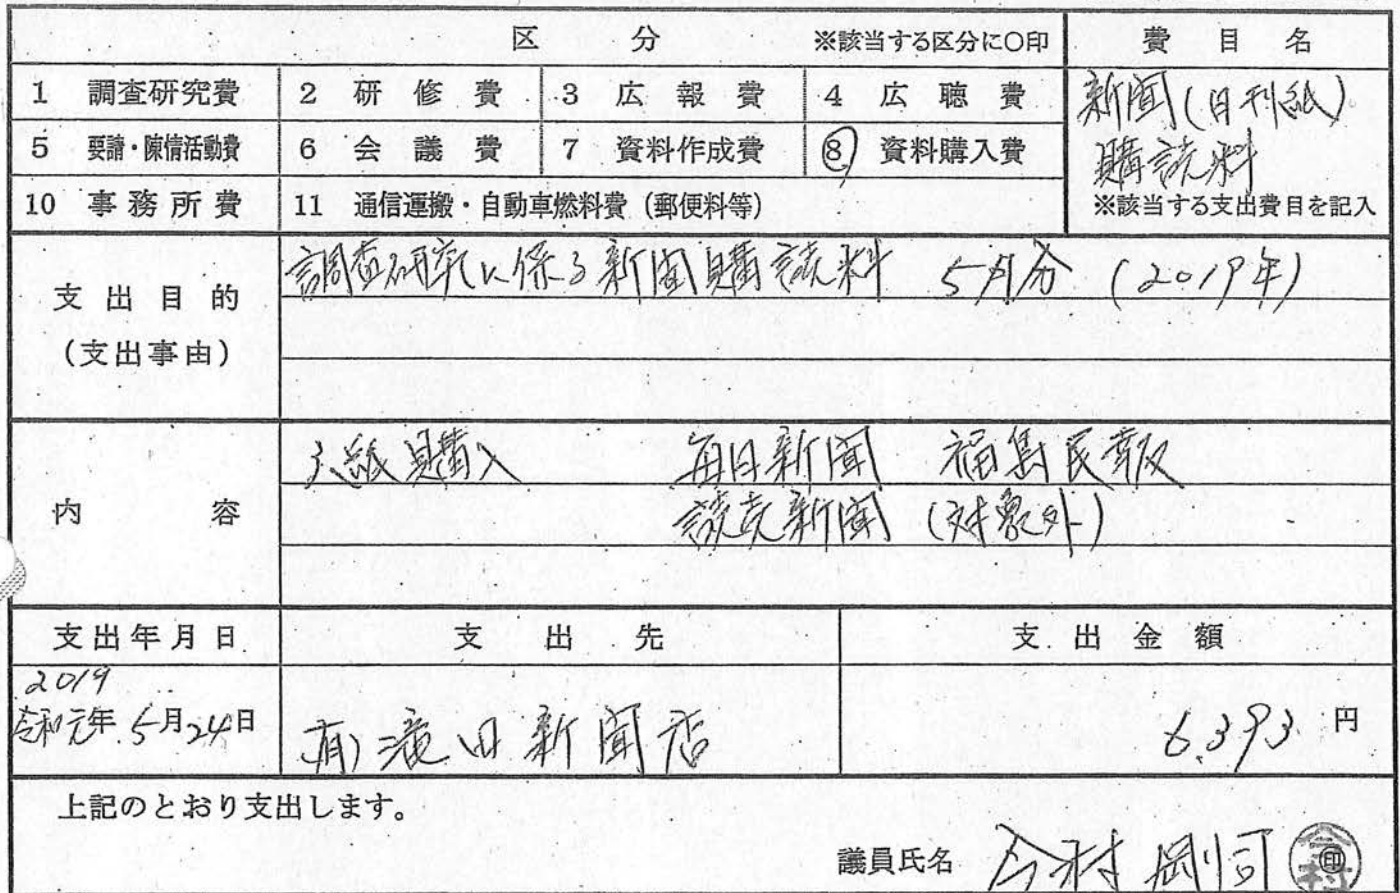 区分 ※該当する区分に○印 費目名
1 調査研究費 2 研修費 3 広報費 4 広聴費
新聞(日刊紙)
5 要請・陳情活動費 6 会議費 7 資料作成費 ⑧ 資料購入費
購読料
10 事務所費 11 通信運搬・自動車燃料費(郵便料等)
※該当する支出費目を記入
支出目的
(支出事由)
調査研究に係る新聞購読料 5月分 (2019年)
内容
紙購入 毎日新聞 福島民報
読売新聞 (対象外)
支出年月日 支出先 支出金額
2019
令和元年5月24日 (有)滝田新聞店 6,393円
上記のとおり支出します。
議員氏名 今村剛司 印